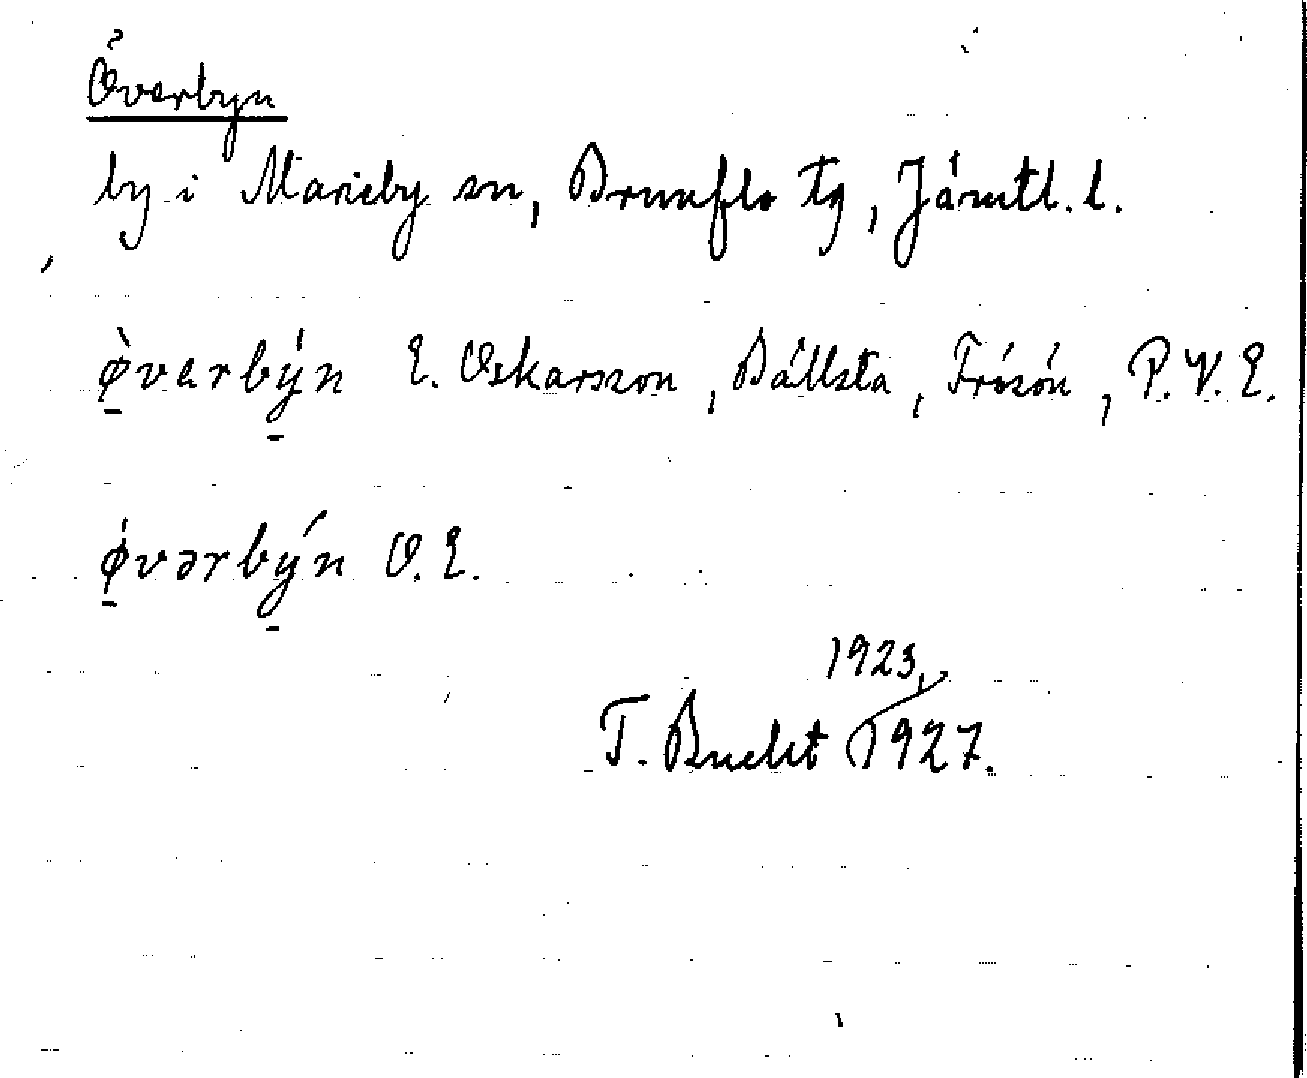 Överbyn
by i Marieby sn, Brunflo tg, Jämtl. l.
ø̀verbýn E. Oskarsson, Bällsta, Frösön, P.V.E.
ǿvərbýn O.E.
1923,
T. Bucht 1927.